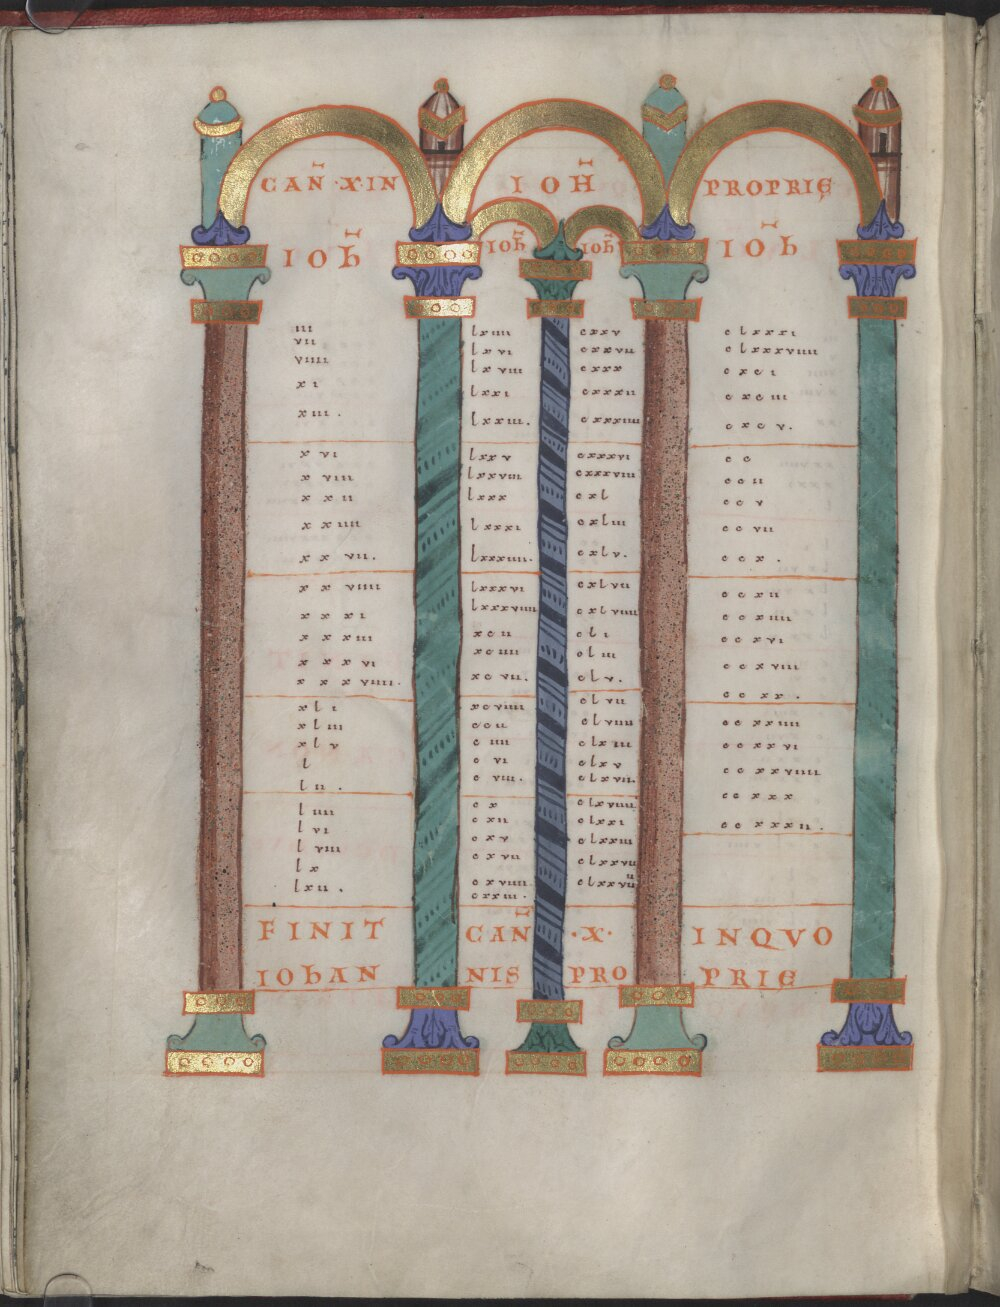 CAN̄ · X · IN IOH̄ PROPRIĘ
IOħ
iii
vii
viiii
xi
xiii .
xvi
xviii
xxii
xxiiii
xxvii .
xxviiii
xxxi
xxxiii
xxxvi
xxxviiii .
xli
xliii
xlv
l
lii .
liiii
lvi
lviii
lx
lxii .
IOħ
lxiiii
lxvi
lxviii
lxxi
lxxiii .
lxxv
lxxviii
lxxx
lxxxi
lxxxiiii .
lxxxvi
lxxxviiii
xcii
xciiii
xcvii .
xcviiii
cii
ciiii
cvi
cviii .
cx
cxii
cxv
cxvii
cxviiii
cxxiii .
IOħ
cxxv
cxxvii
cxxx
cxxxii
cxxxiiii
cxxxvi
cxxxviii
cxl
cxliii
cxlv .
cxlvii
cxlviiii
cli
cliii
clv .
clvii
clviiii
clxiii
clxv
clxvii .
clxviiii
clxxi
clxxiii
clxxvii
IOħ
clxxxi
clxxxviiii
cxci
cxciii
cxcv .
cc
ccii
ccv
ccvii
ccx .
ccxii
ccxiiii
ccxvi
ccxviii
ccxx .
ccxxiiii
ccxxvi
ccxxviiii
ccxxx
ccxxxii .
FINIT CAN̄ · X · IN QVO
IOhANNIS PROPRIE